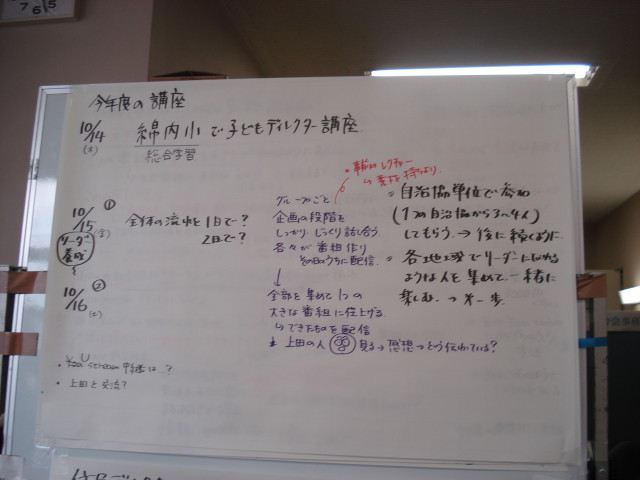 765
今年度の講座
10/14 綿内小で子どもディレクター講座
(木) 総合学習
10/15 ①
(金)
リーダー
養成
全体の流れを1日で?
2日で?
10/16 ②
(土)
・Ustream中継は…?
・上田と交流?
レクチャー
↳ 素材を持ちより
グループごと
企画の段階を
しっかり じっくり 話し合う
各々が番組作り
その日のうちに配信
↓
全部を集めて1つの
大きな番組に仕上げる
↳ できたものを配信
上田の人 見る→感想→どう伝わっている?
自治協単位で参加
(1つの自治協から3〜4人)
してもらう→後に続くように
各地域でリーダーになれる
ような人を集めて一緒に
楽しむ → 第一歩